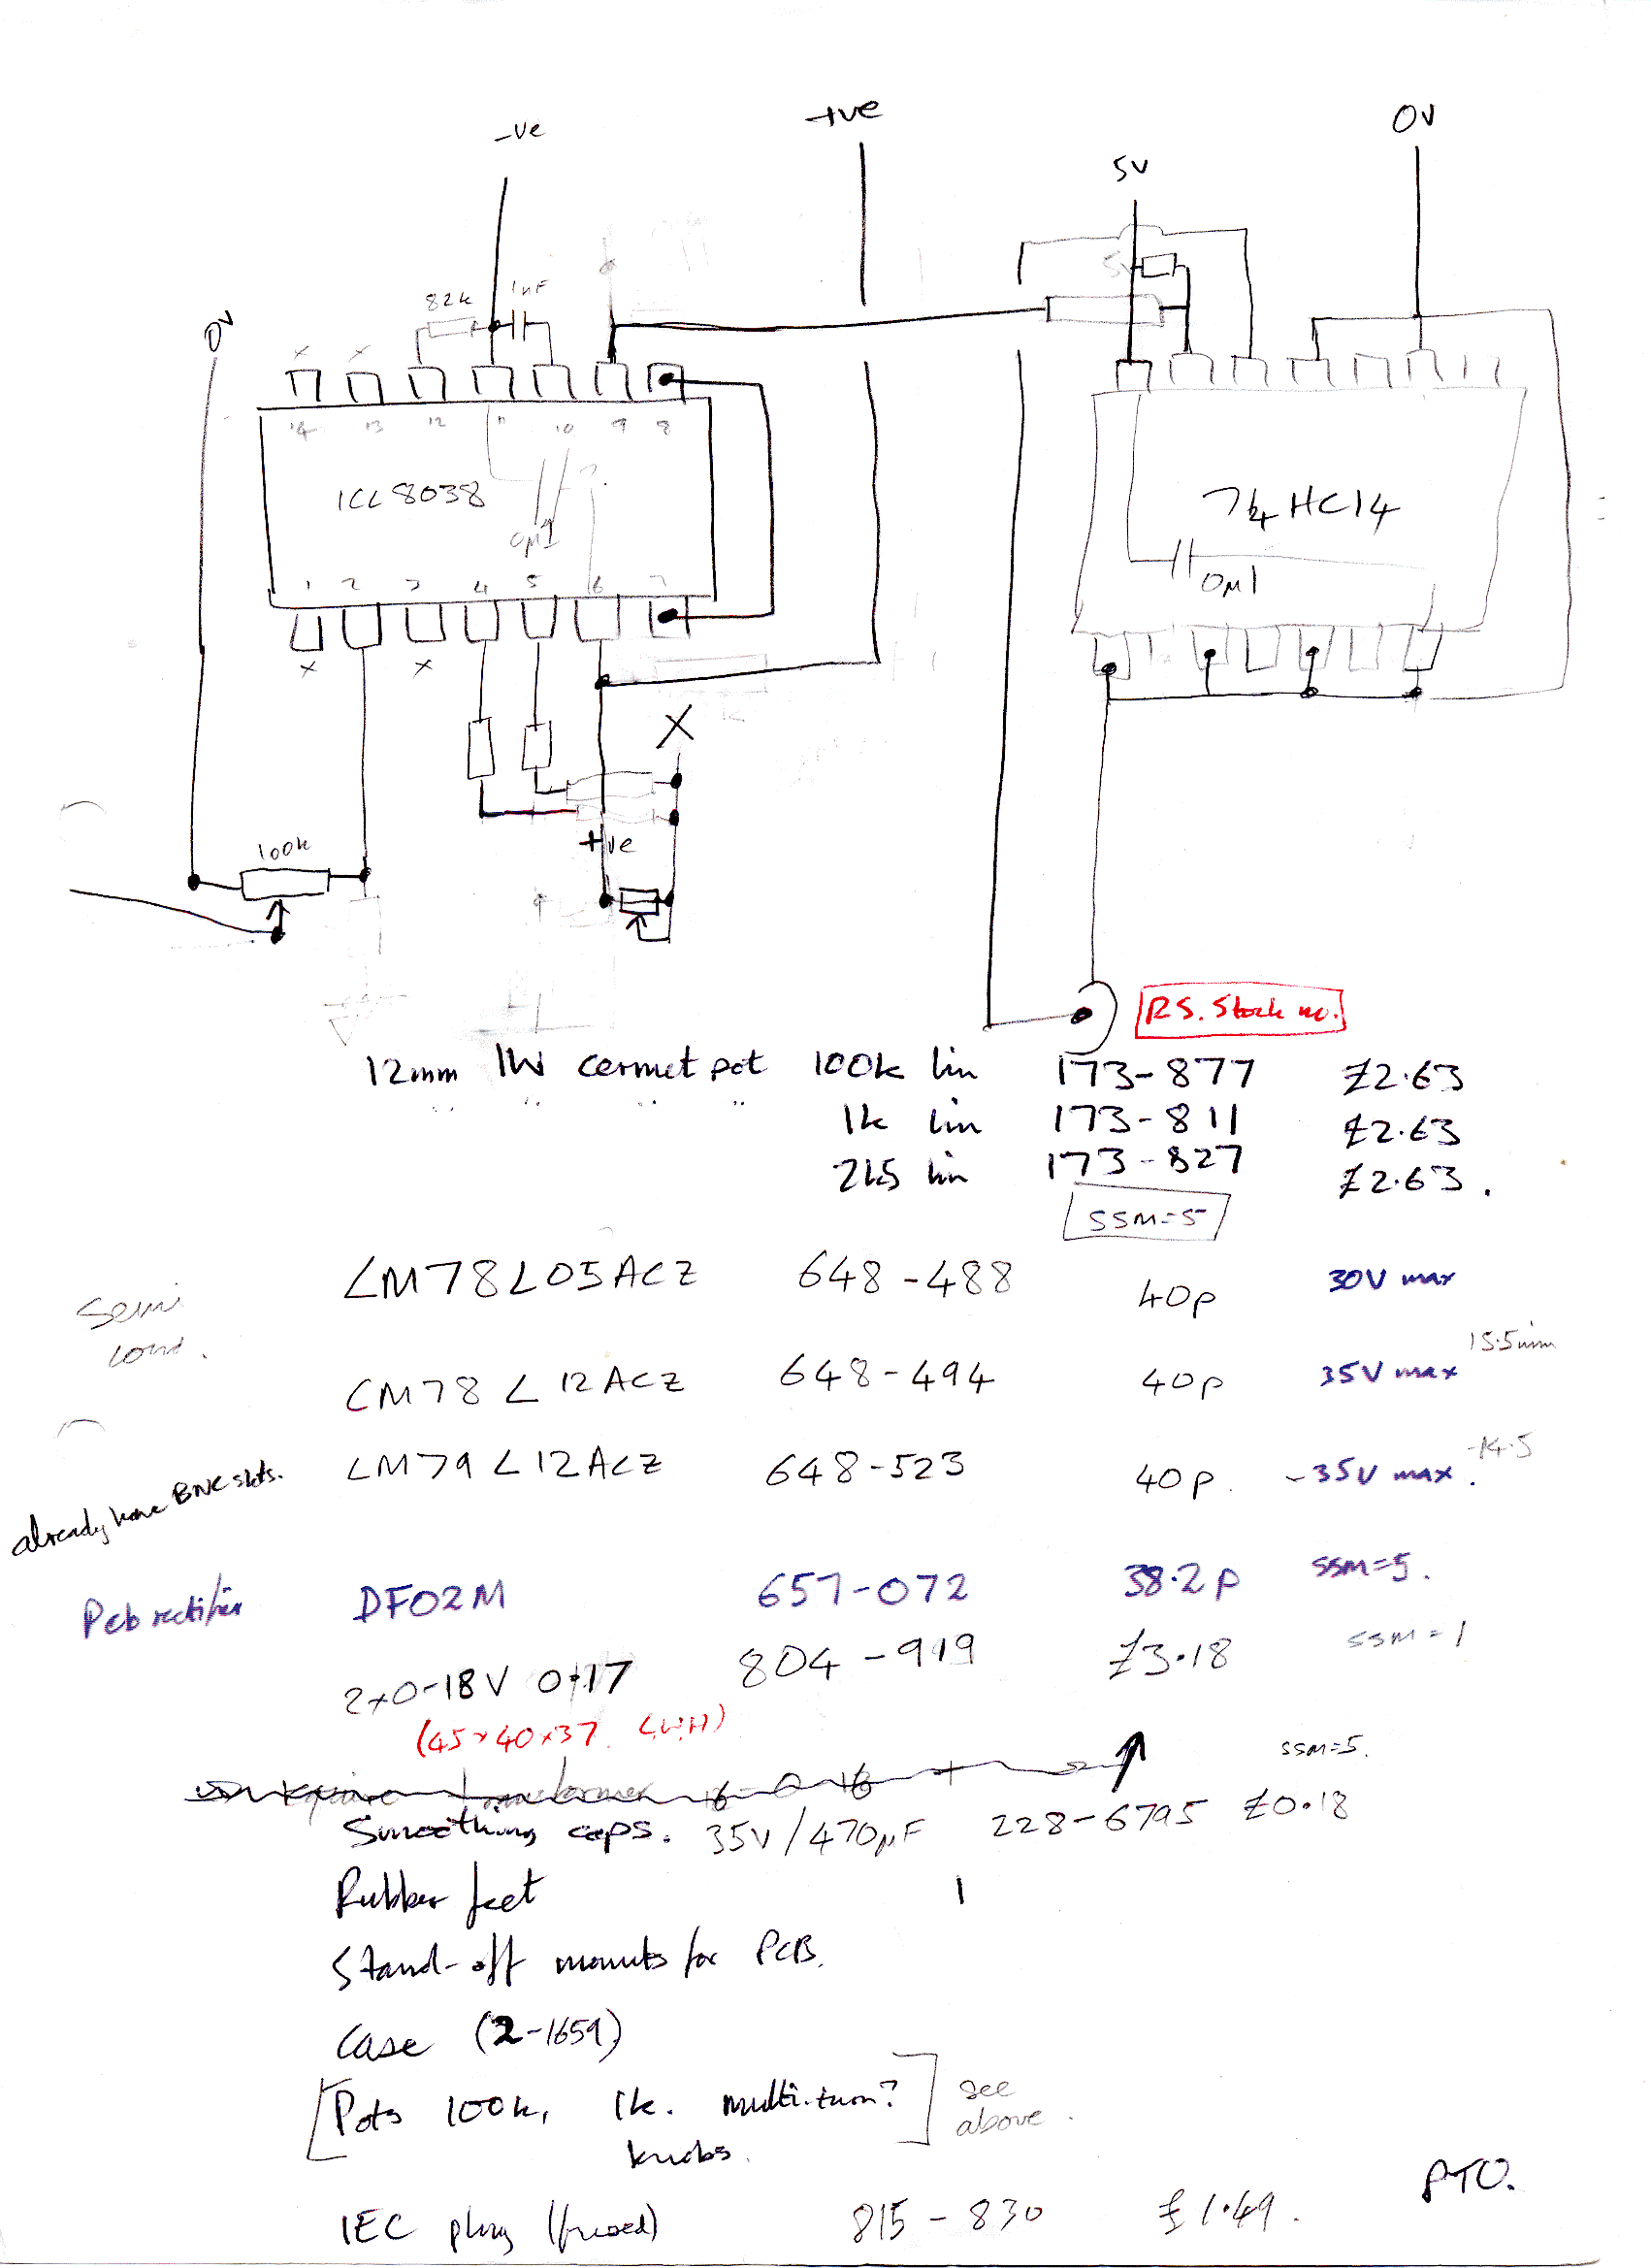 -ve
+ve
0V
5V
0V
82k
1nF
5v
x x
14 13 12 11 10 9 8
ICL8038
0μ1
74HC14
0μ1
1 2 3 4 5 6 7
x x
X
100k
+ve
RS. Stock no.
12mm 1W cermet pot 100k lin 173-877 £2.63
" " " " 1k lin 173-811 £2.63
2k5 lin 173-827 £2.63.
SSM=5
LM78L05ACZ 648-488 40p 30V max
Semi
cond.
LM78L12ACZ 648-494 40p 35V max 15.5min
LM79L12ACZ 648-523 40p. -35V max. -14.5
already have BNC skts.
Pcb rectifier DF02M 657-072 38.2p SSM=5.
2x0-18V 0.17 804-919 £3.18 SSM=1
(45x40x37. LWH)
transformer
Smoothing caps. 35V/470μF 228-6795 £0.18 SSM=5.
Rubber feet 1
Stand-off mounts for PCB.
Case (2-1659)
[Pots 100k, 1k. multi-turn?] see above.
knobs.
PTO.
IEC plug (fused) 815-830 £1.49.